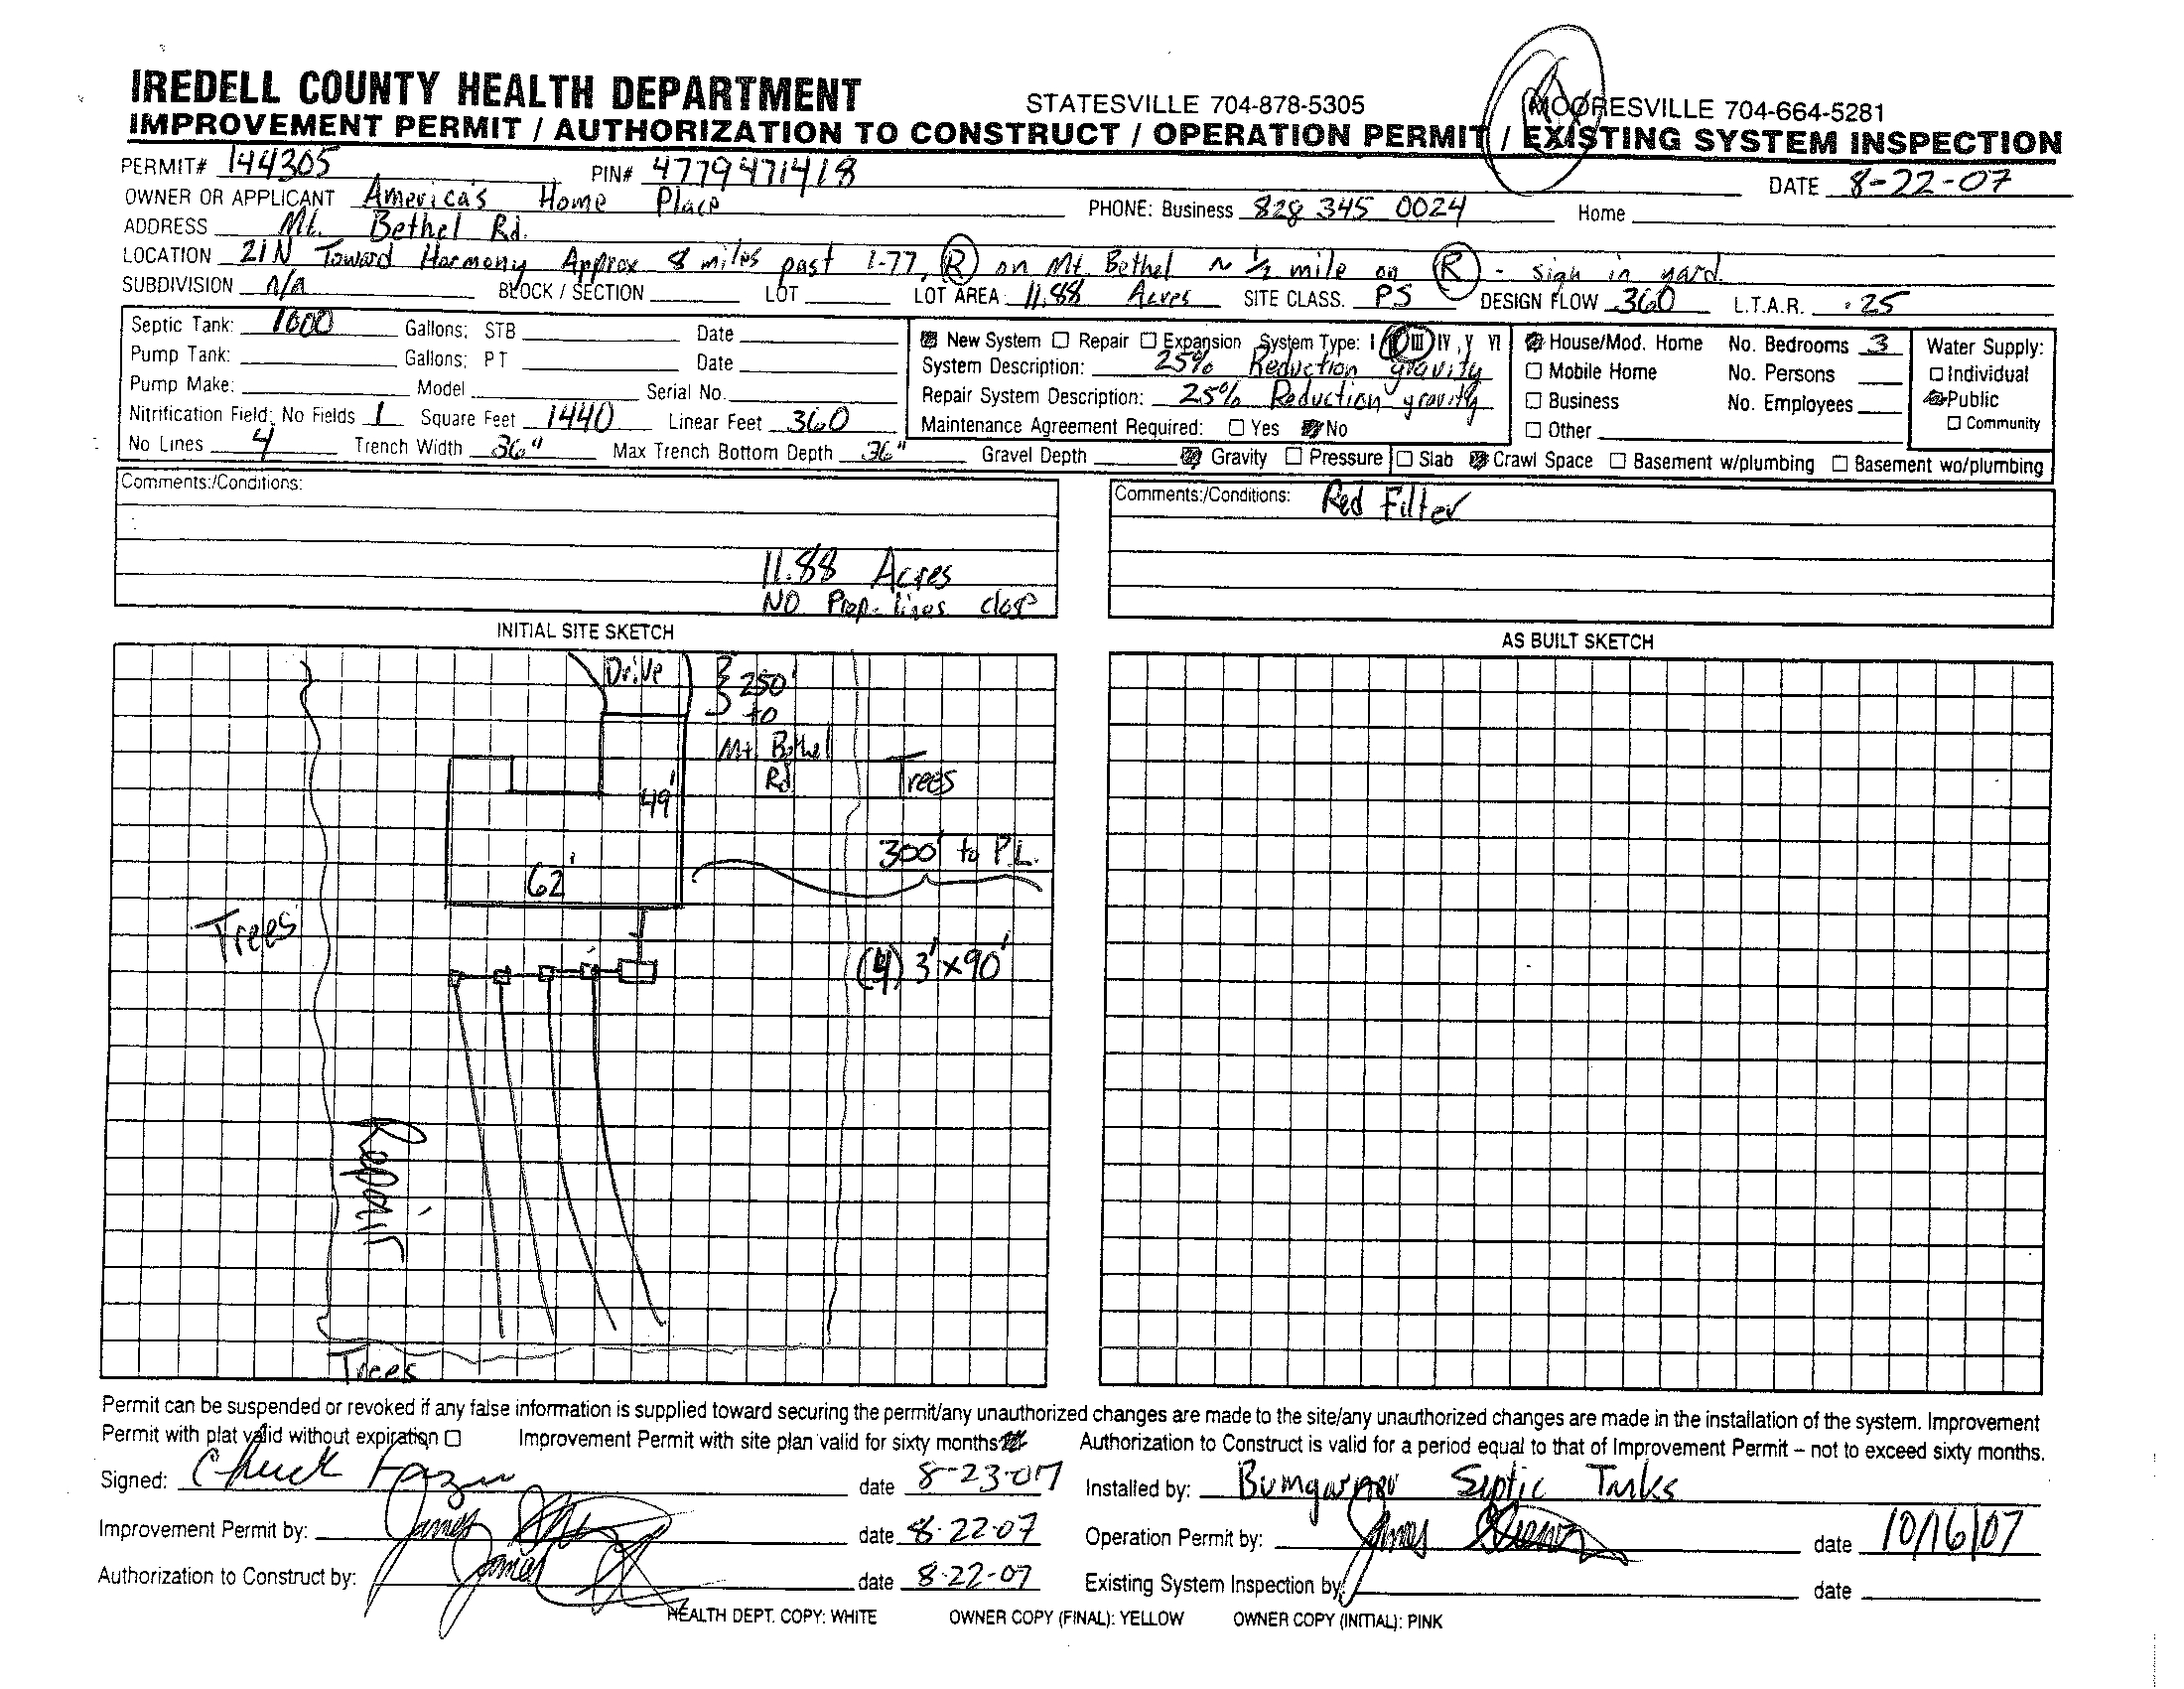 IREDELL COUNTY HEALTH DEPARTMENT
STATESVILLE 704-878-5305 MOORESVILLE 704-664-5281
IMPROVEMENT PERMIT / AUTHORIZATION TO CONSTRUCT / OPERATION PERMIT / EXISTING SYSTEM INSPECTION
PERMIT# 144305 PIN# 4779471418 DATE 8-22-07
OWNER OR APPLICANT America's Home Place PHONE: Business 828 345 0024 Home
ADDRESS Mt. Bethel Rd.
LOCATION 21N Toward Harmony Approx 8 miles past I-77, R on Mt. Bethel ~ 1/2 mile on R - sign in yard.
SUBDIVISION n/a BLOCK / SECTION LOT LOT AREA 11.88 Acres SITE CLASS. PS DESIGN FLOW 360 L.T.A.R. .25
Septic Tank: 1000 Gallons; STB Date
Pump Tank: Gallons; PT Date
Pump Make: Model Serial No.
Nitrification Field: No Fields 1 Square Feet 1440 Linear Feet 360
No Lines 4 Trench Width 36" Max Trench Bottom Depth 36" Gravel Depth Gravity Pressure Slab Crawl Space Basement w/plumbing Basement wo/plumbing
New System Repair Expansion System Type: I II III IV V VI
System Description: 25% Reduction gravity
Repair System Description: 25% Reduction gravity
Maintenance Agreement Required: Yes No
House/Mod. Home No. Bedrooms 3
Mobile Home No. Persons
Business No. Employees
Other
Water Supply:
Individual
Public
Community
Comments:/Conditions:
11.88 Acres
NO Prop. lines close
Comments:/Conditions: Red Filter
INITIAL SITE SKETCH
Drive
250'
to
Mt. Bethel
Rd
Trees
49'
300' to P.L.
62'
Trees
(4) 3'x90'
Repair
Trees
AS BUILT SKETCH
Permit can be suspended or revoked if any false information is supplied toward securing the permit/any unauthorized changes are made to the site/any unauthorized changes are made in the installation of the system. Improvement
Permit with plat valid without expiration Improvement Permit with site plan valid for sixty months Authorization to Construct is valid for a period equal to that of Improvement Permit – not to exceed sixty months.
Signed: Chuck date 8-23-07 Installed by: Bumgarner Septic Tanks
Improvement Permit by: James date 8-22-07 Operation Permit by: James date 10/16/07
Authorization to Construct by: James date 8-22-07 Existing System Inspection by: date
HEALTH DEPT. COPY: WHITE OWNER COPY (FINAL): YELLOW OWNER COPY (INITIAL): PINK